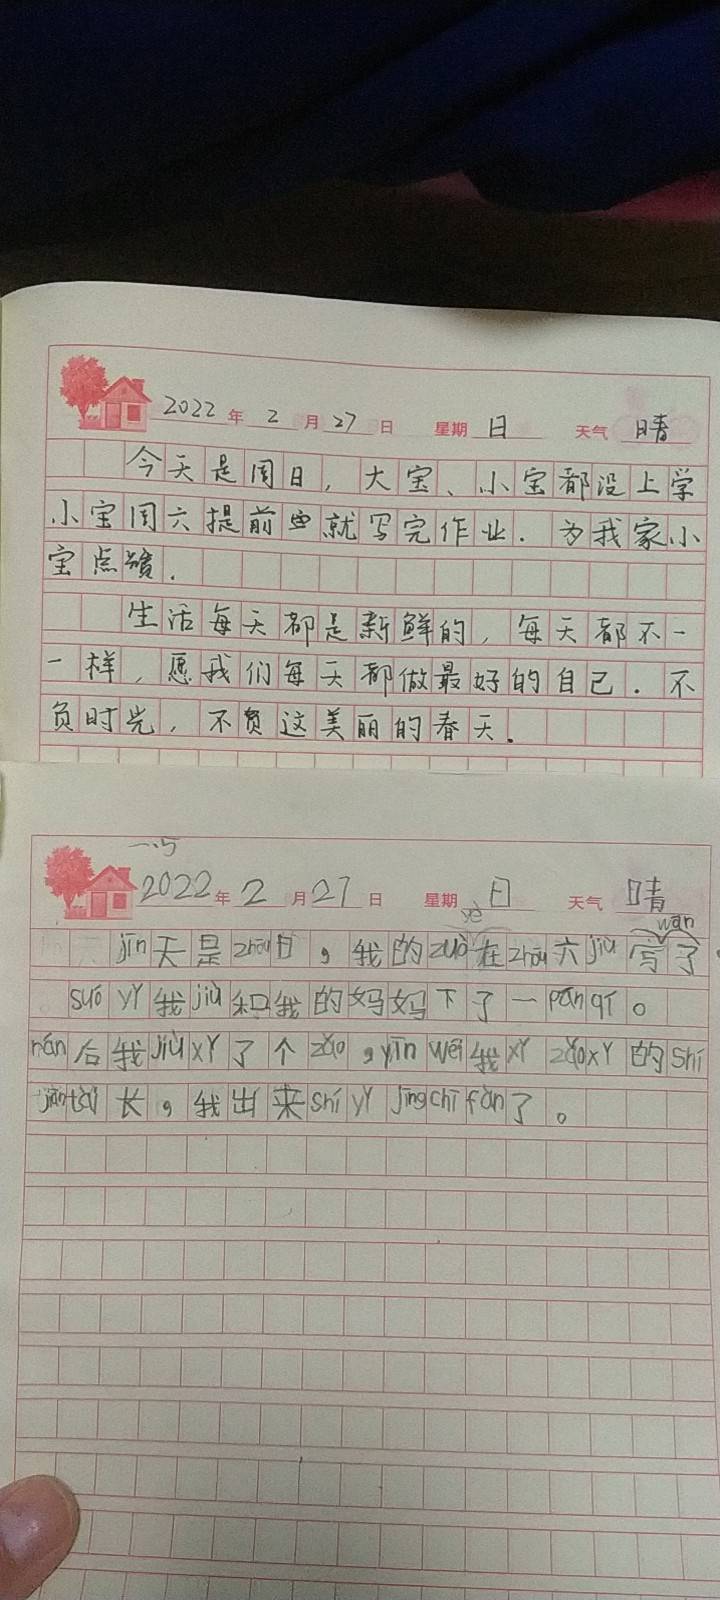 2022年2月27日 星期日 天气晴
今天是周日，大宝、小宝都没上学
小宝周六提前就写完作业．为我家小
宝点赞．
生活每天都是新鲜的，每天都不一
一样，愿我们每天都做最好的自己．不
负时光，不负这美丽的春天．
2022年2月27日 星期日 天气晴
yè wán
jīn天是zhōu日，我的zuò在zhōu六jiù写了。
suó yǐ我jiù和我的妈妈下了一pán qí。
rán后我jiù xǐ了个zǎo，yīn wéi我xǐ zǎo xǐ的shí
jiān tài长，我出来shí yǐ jīng chī fàn了。